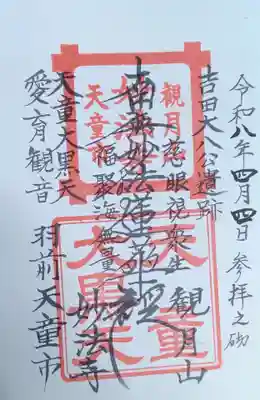 令和八年四月四日 参拝之砌
吉田大八公遺跡 観月山
慈眼視衆生
南無妙法蓮華経
福聚海無量 妙法寺
天童大黒天
愛育観音 羽前天童市
観月
天童市
天童
大黒天